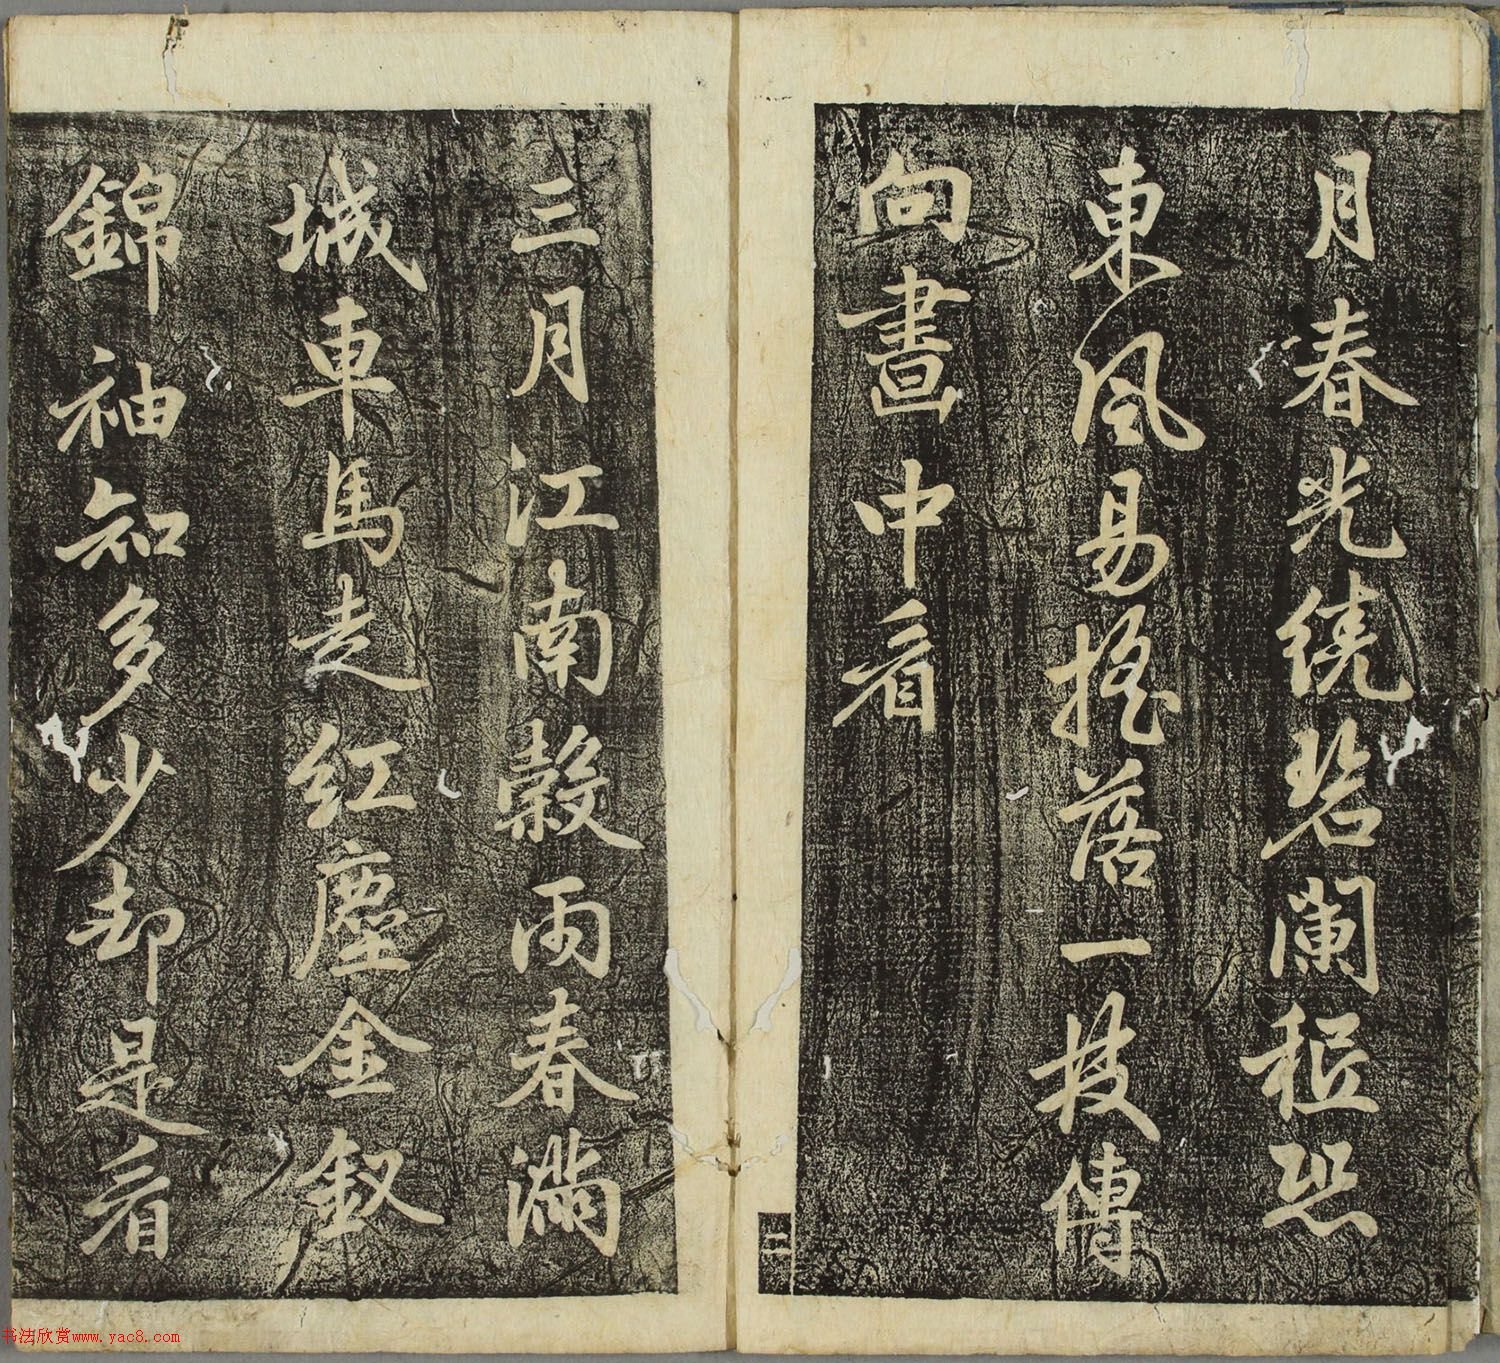 月春光繞碧闌種恐
東風易搖落一枝傳
向畫中看
三月江南榖雨春滿
城車馬走紅塵金釵
錦袖知多少却是看
二
书法欣赏www.yac8.com